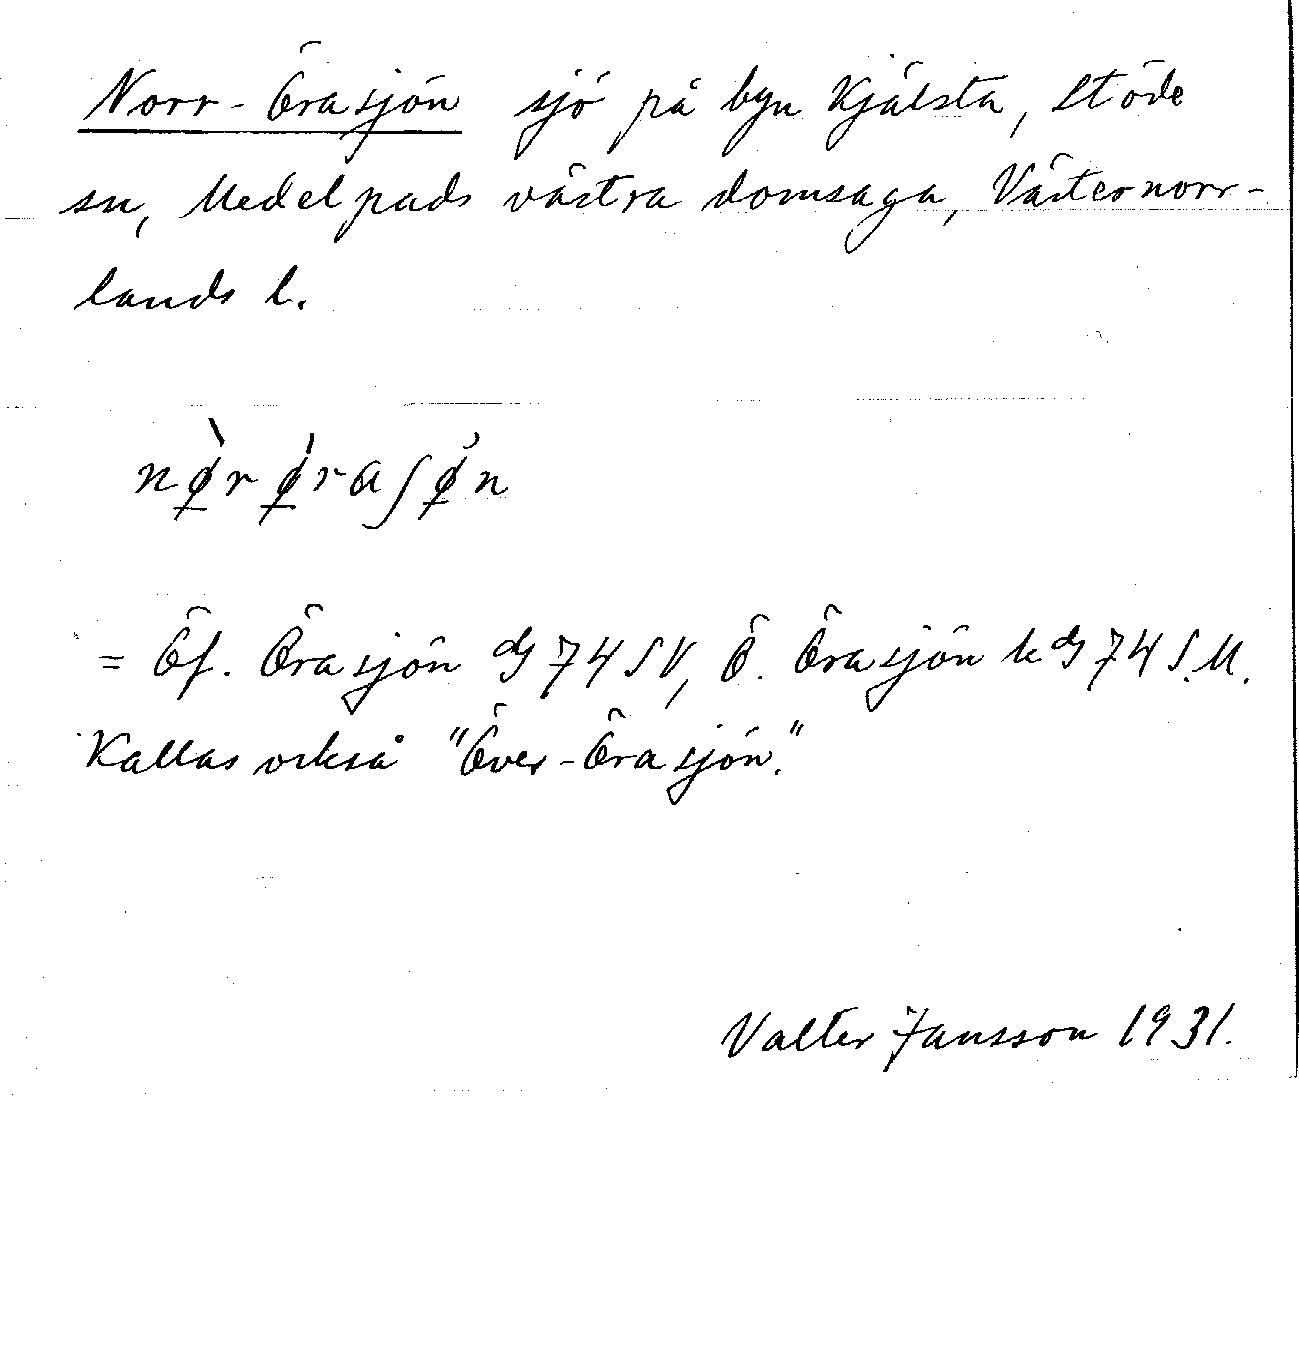 Norr-Örasjön sjö på byn Kjälsta, Stöde
sn, Medelpads västra domsaga, Västernorr-
lands l.
nø̀rø̀raʃøn
= Öf. Örasjön dg 74 SV, Ö. Örasjön k dg 74 S.M.
Kallas också "Över-Örasjön."
Valter Jansson 1931.